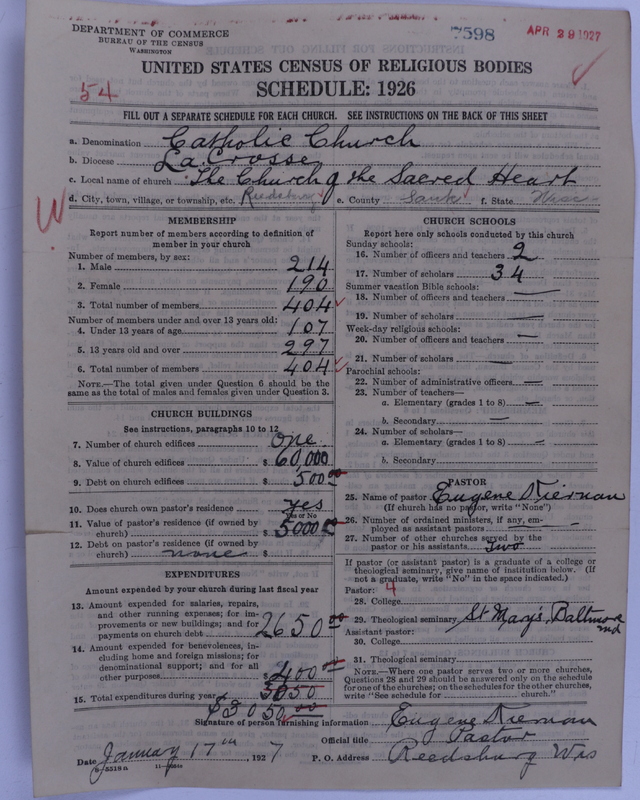 DEPARTMENT OF COMMERCE
BUREAU OF THE CENSUS
WASHINGTON
7598
APR 29 1927
UNITED STATES CENSUS OF RELIGIOUS BODIES
54
SCHEDULE: 1926
FILL OUT A SEPARATE SCHEDULE FOR EACH CHURCH. SEE INSTRUCTIONS ON THE BACK OF THIS SHEET
a. Denomination Catholic Church
b. Diocese La Crosse
c. Local name of church The Church of the Sacred Heart
d. City, town, village, or township, etc. Reedsburg e. County Sauk f. State Wisc
W
MEMBERSHIP
Report number of members according to definition of
member in your church
Number of members, by sex:
1. Male 214
2. Female 190
3. Total number of members 404
Number of members under and over 13 years old:
4. Under 13 years of age 107
5. 13 years old and over 297
6. Total number of members 404
NOTE.—The total given under Question 6 should be the
same as the total of males and females given under Question 3.
CHURCH BUILDINGS
See instructions, paragraphs 10 to 12
7. Number of church edifices one
8. Value of church edifices $ 60,000
9. Debt on church edifices $ 500 00
10. Does church own pastor's residence yes
Yes or No
11. Value of pastor's residence (if owned by
church) $ 5000 00
12. Debt on pastor's residence (if owned by
church) none $
EXPENDITURES
Amount expended by your church during last fiscal year
13. Amount expended for salaries, repairs,
and other running expenses; for im-
provements or new buildings; and for
payments on church debt $ 2650 00
14. Amount expended for benevolences, in-
cluding home and foreign missions; for
denominational support; and for all
other purposes $ 400 00
15. Total expenditures during year $ 3050
$3050.00
CHURCH SCHOOLS
Report here only schools conducted by this church
Sunday schools:
16. Number of officers and teachers 2
17. Number of scholars 34
Summer vacation Bible schools:
18. Number of officers and teachers —
19. Number of scholars —
Week-day religious schools:
20. Number of officers and teachers —
21. Number of scholars —
Parochial schools:
22. Number of administrative officers —
23. Number of teachers—
a. Elementary (grades 1 to 8) —
b. Secondary —
24. Number of scholars—
a. Elementary (grades 1 to 8) —
b. Secondary
PASTOR
25. Name of pastor Eugene Kiernan
(If church has no pastor, write "None")
26. Number of ordained ministers, if any, em-
ployed as assistant pastors —
27. Number of other churches served by the
pastor or his assistants two
If pastor (or assistant pastor) is a graduate of a college or
theological seminary, give name of institution below. (If
not a graduate, write "No" in the space indicated.)
Pastor: 4
28. College
29. Theological seminary St Mary's, Baltimore
Md
Assistant pastor:
30. College
31. Theological seminary
NOTE.—Where one pastor serves two or more churches,
Questions 28 and 29 should be answered only on the schedule
for one of the churches; on the schedules for the other churches,
write "See schedule for church."
Signature of person furnishing information Eugene Kiernan
Official title Pastor
Date January 17th, 1927 P. O. Address Reedsburg Wis